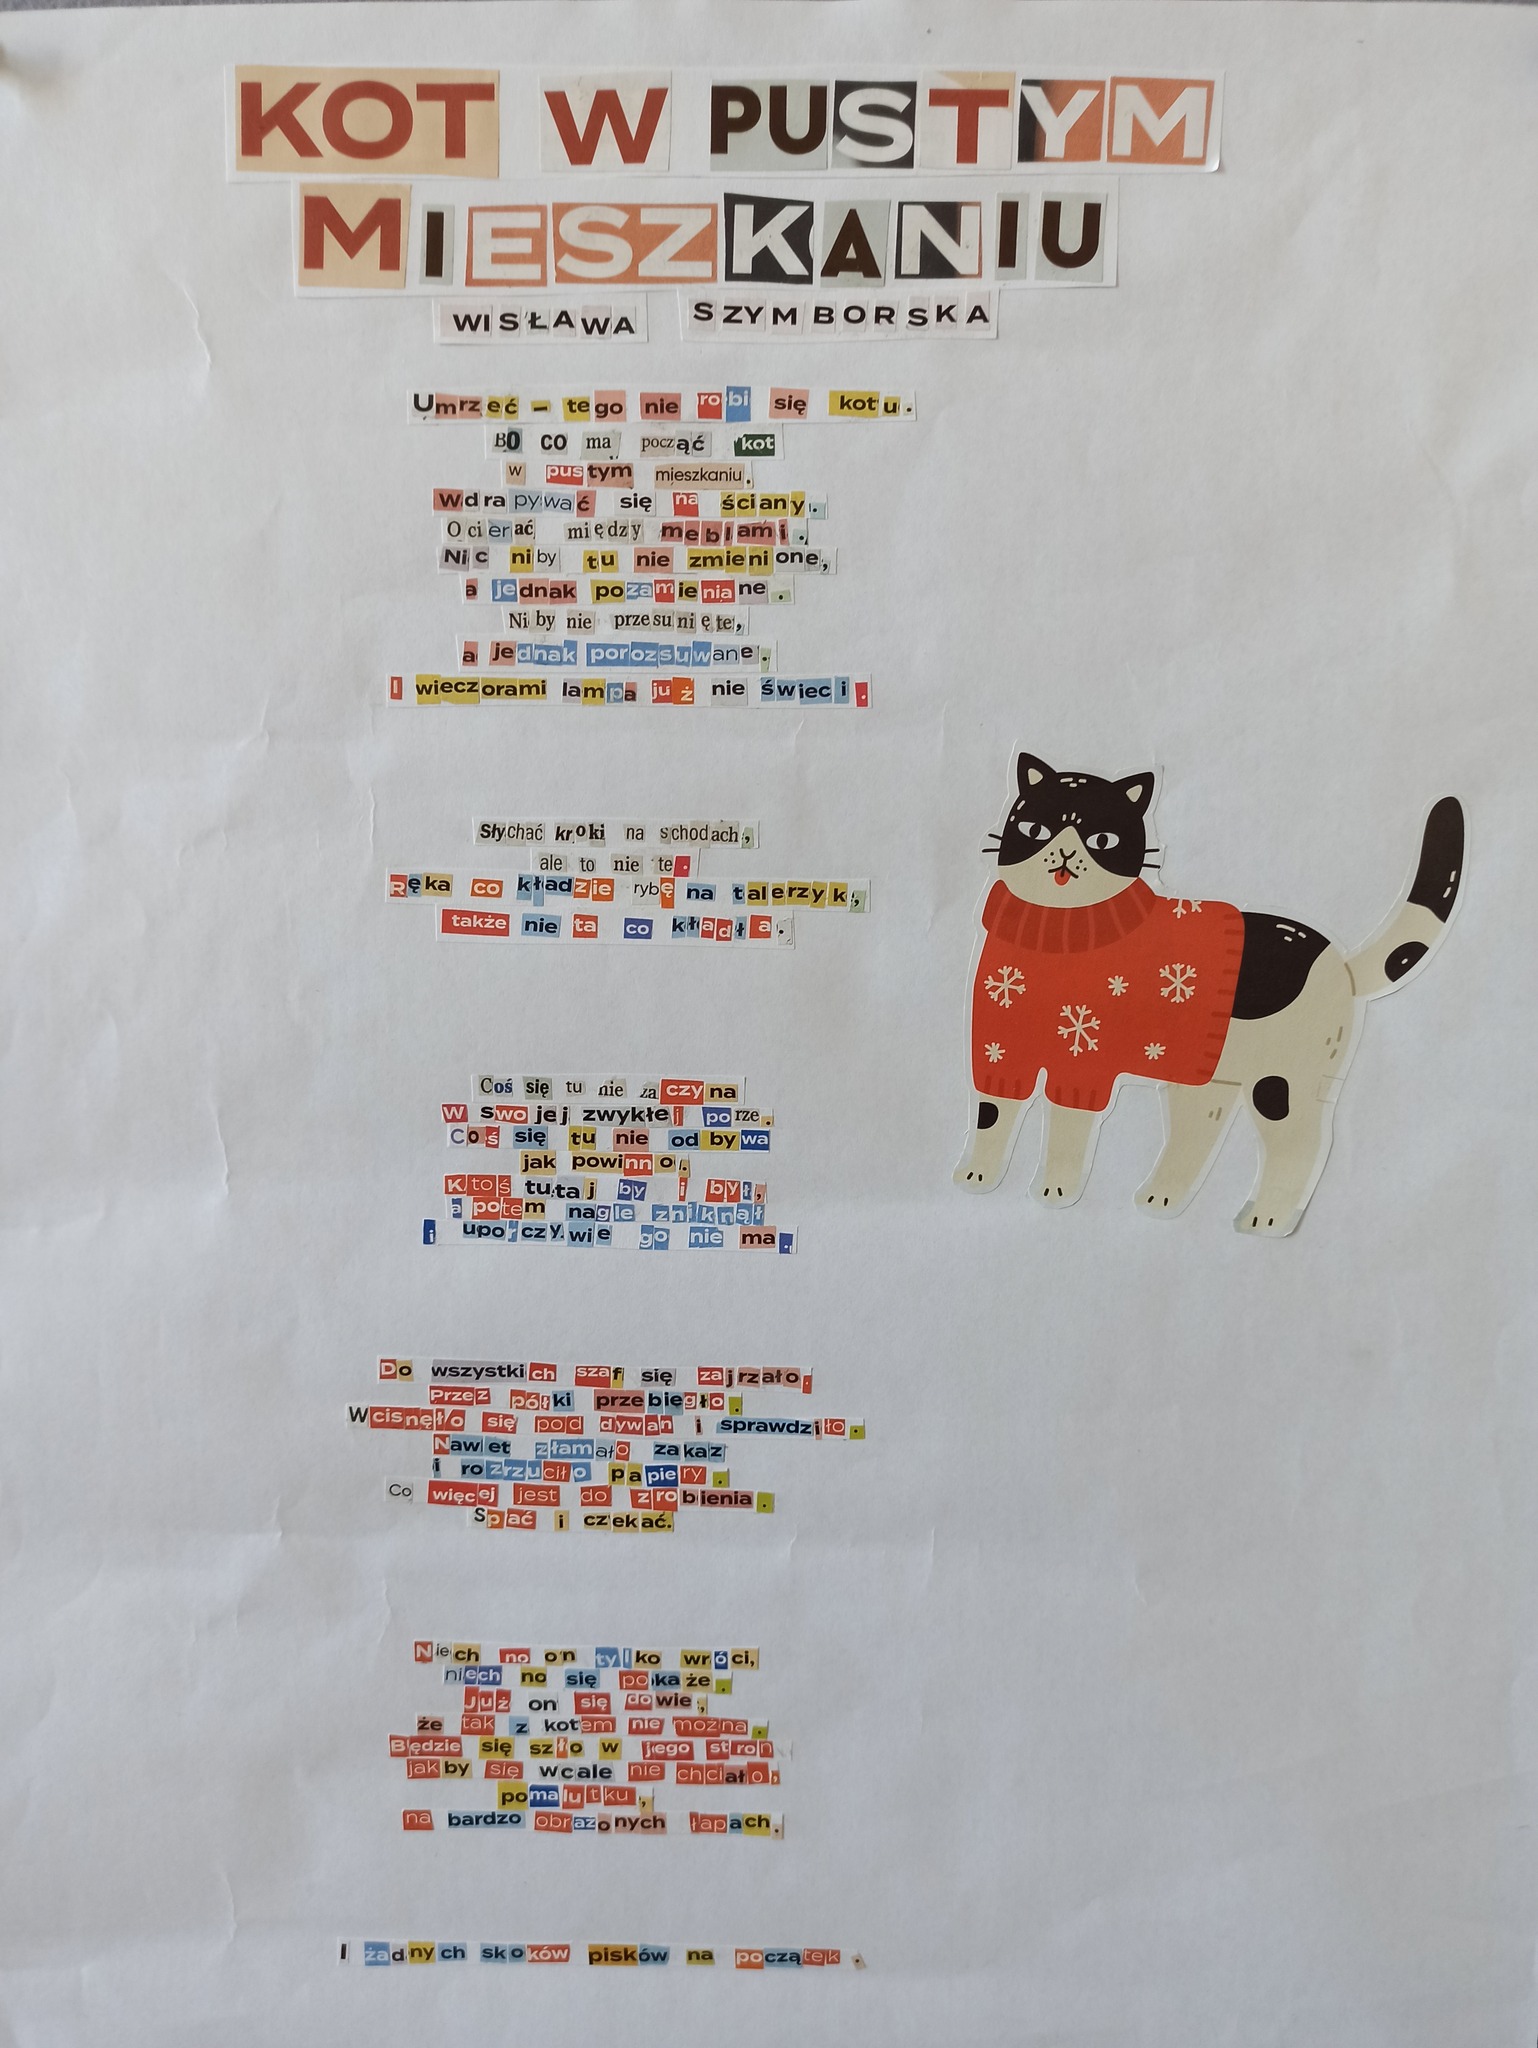 KOT W PUSTYM
MIESZKANIU
WISŁAWA SZYMBORSKA
Umrzeć – tego nie robi się kotu.
BO co ma począć kot
w pustym mieszkaniu.
Wdrapywać się na ściany.
Ocierać między meblami.
Nic niby tu nie zmienione,
a jednak pozamieniane.
Niby nie przesunięte,
a jednak porozsuwane.
I wieczorami lampa już nie świeci.
Słychać kroki na schodach,
ale to nie te.
Ręka co kładzie rybę na talerzyk,
także nie ta co kładła.
Coś się tu nie zaczyna
W swojej zwykłej porze.
Coś się tu nie odbywa
jak powinno.
Ktoś tutaj by i był,
a potem nagle zniknął
i uporczywie go nie ma.
Do wszystkich szaf się zajrzało.
Przez półki przebiegło.
Wcisnęło się pod dywan i sprawdziło.
Nawet złamało zakaz
i rozrzuciło papiery.
Co więcej jest do zrobienia.
Spać i czekać.
Niech no on tylko wróci,
niech no się pokaże.
Już on się dowie,
że tak z kotem nie można.
Będzie się szło w jego stron
jakby się wcale nie chciało,
pomalutku,
na bardzo obrażonych łapach.
I żadnych skoków pisków na początek.